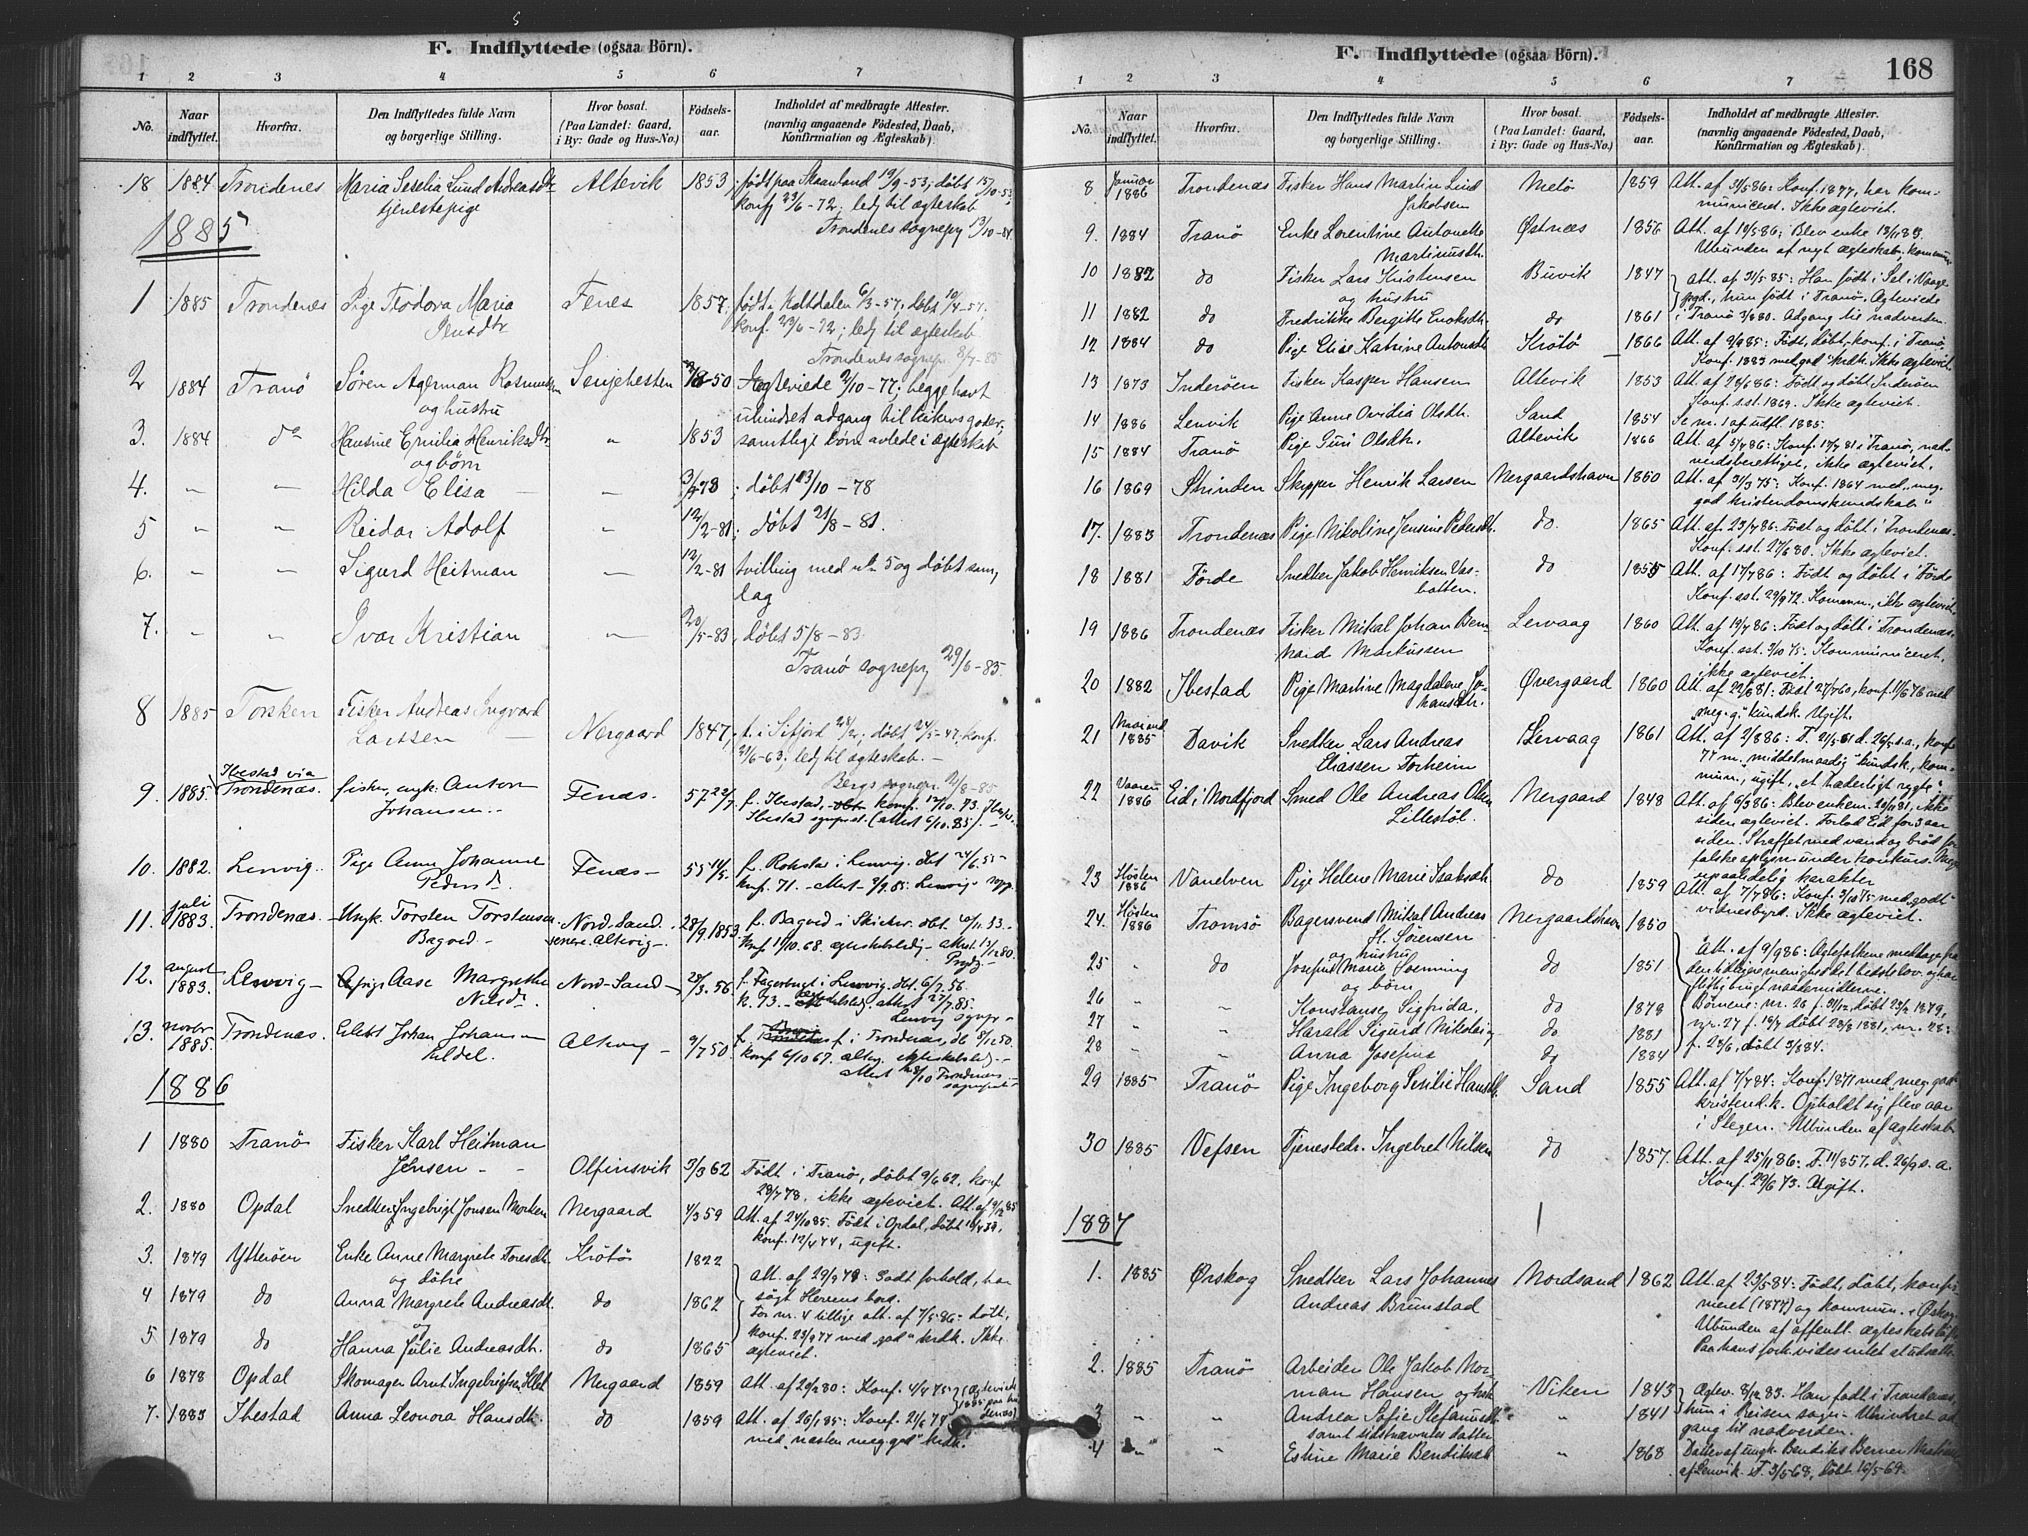 F. Indflyttede (ogsaa Börn).
1 2 3 4 5 6 7
No. Naar indflyttet. Hvorfra. Den Indflyttedes fulde Navn og borgerlige Stilling. Hvor bosat. (Paa Landet: Gaard, i By: Gade og Hus-No.) Fødsels-aar. Indholdet af medbragte Attester. (navnlig angaaende Fødested, Daab, Konfirmation og Ægteskab).
18 1884 Trondenes Maria Seselia Lund Andreasdtr Altevik 1853 født paa Skaanland 19/9-53; døbt 15/10-53
tjenestepige konf 23/6-72; ledig til ægteskab
1885 Trondenes sognepr 13/10-84
1 1885 Trondenæs Pige Teodora Maria Fenes 1857 født Kaltdalen 6/3-57; døbt 10/4-57;
Jensdtr konf. 23/6-72; ledig til ægteskab
Trondenes sognepr. 8/7-85
2 1884 Tranö Sören Agerman Rasmussen Senjehesten 50 Ægteviede 2/10-77; begge havt
og hustru uhindret adgang til kirkens goder;
3. 1884 do Hansine Emilia Henriksdtr " 1853 samtligt børn avlede i ægteskab
og børn
4. Hilda Elisa 78 døbt 13/10-78
5 Reidar Adolf 12/2-81 døbt 21/8-81.
6. Sigurd Heitman 12/2-81 tvilling med nr 5 og døbt sam,
lag
7. Ivar Kristian 20/5-83 døbt 5/8-83.
Tranö sognepr 29/6-85.
8 1885 Torsken Fisker Andreas Ingvard
Lartsen Nergaard 1847 f. i Sifjord; døbt 24/5-47, konf.
21/6-63; ledig til ægteskab.-
Ibestad via Bergs sognepr. 2/8-85
9. 1885. Trondenæs. fisker, ungk. Anton Fenæs. 57 22/7 f. Ibestad, konf. 12/10 73.
Johansen Ibestad sognepræst. (attest 6/10.85).
10. 1882. Lenvig. Pige Anna Johanna Fenæs- 55 14/5 f. Rokstad i Lenvig. dbt 24/6 55
Pedersdr. konf. 71. - Attest 2/9.85. Lenvig
11. juli 1883. Trondenæs. Ungk. Torsten Torstensen Nord-Sand. 28/9.1853 f. Bagved - dbt. 53.
Bagved - senere Altevig - Konf 1/10.68. ægteskabsledig - attest
12. august 1883. Lenvig - Pige Aase Margrethe Nord-Sand - 3.56 f. Fagerbugt i Lenvig. dbt. 6/7.56.
Nilsdr. k. 73. - attest 27/7.85.
Lenvig sognepr -
13. novbr 1885. Trondenæs. Johan Johansen Altevig - 7 50. f. i Trondenæs. db 8/12 50.
konf 6/10 67. ægteskabsledig -
Attest 28/10 Trondenæs sognepræst
1886
1 1880 Tranö Fisker Karl Heitman
Jensen - Olfinsvik 3/3 62 Født i Tranö, døbt 9/6 62, konf
28/7 78, ikke ægteviet. Att. af 9/12 85
2. 1880 Opdal Snedker Ingebrigt Jonsen Morken Nergaard 4/3 59 Att. af 24/10 85. Født i Opdal, døbt 10/4 59,
konf. 12/4 74, ugift.
3. 1879 Ytterøen Enke Anne Margrete Toresdtr. Krötö 1822
og døtre Att. af 29/9 78: Godt forhold, har
4 1879 do Anna Margrete Andreasdt. do 1862 søgt Herrens bord.
og For nr. 4 tillige att. af 7/5 86: døbt,
5 1879 do Hanna Julie Andreasdt. do 1865 konf. 23/9 77 med "god" krdk. Ikke
ægteviet.
6 1878 Opdal Skomager Arnt Ingebrigtsen Nergaard 1859 Att. af 29/2 80: Konf. 4/4 75
7. 1883 Ibestad Anna Leonora Hansdt. do 1859 Att. af 26/1 85: Konf. 21/6 74
med "næsten meg. god" krdk.
F. Indflyttede (ogsaa Börn). 168
1 2 3 4 5 6 7
No. Naar indflyttet. Hvorfra. Den Indflyttedes fulde Navn og borgerlige Stilling. Hvor bosat. (Paa Landet: Gaard, i By: Gade og Hus-No.) Fødsels-aar. Indholdet af medbragte Attester. (navnlig angaaende Fødested, Daab, Konfirmation og Ægteskab).
8 Januar 1886 Trondenæs Fisker Hans Martin Lind Metö 1859 Att. af 31/5 86: Konf. 1877, har kom-
Jakobsen municeret. Ikke ægteviet.
9. 1884 Tranö Enke Lorentine Antonette Østnæs 1856 Att. af 19/5 86; Blev enke 13/1 83.
Martinusdt. Ubunden af nyt ægteskab, kommun.
10 1882 do Fisker Lars Kristensen Buvik 1847 Att. af 31/5 85: Han født i Sel i Vaage
og hustru prgd., hun født i Tranö. Ægteviede
11 1882 do Fredrikke Bergitte Enoksdt. do 1861 i Tranö 3/8 80. Adgang til nadverden.
12 1884 do Pige Elise Katrine Antonsdt Krötö 1866 Att. af 2/9 85: Født, døbt, konf. i Tranö
Konf. 1883 meg. god krdk. Ikke ægteviet.
13 1873 Inderöen Fisker Kasper Hansen Altevik 1853 Att. af 28/6 86: Født og døbt Inderöen
Konf. s.st. 1869. Ikke ægteviet.
14 1886 Lenvik Pige Anne Ovidia Olsdt. Sand 1854 Se nr. 1 af udfl. 1885.
15 1884 Tranö Pige Guri Olsdt. Altevik 1866 Att. af 5/7 86: Konf. 17/7 81 i Tranö, nad-
verdsberettiget, ikke ægteviet.
16 1869 Strinden Skipper Henrik Larsen Nergaardshavn 1850 Att. af 31/3 75: Konf. 1864 med "meg.
god kristendomskundskab"
17. 1883 Trondenæs Pige Nikoline Jensine Pedersdt. do. 1865 Att. af 23/7 86: Født og døbt i Trondenæs.
Konf. sst. 27/6 80. Ikke ægteviet.
18 1881 Förde Snedker Jakob Henriksen Vas- do 1855 Att. af 17/7 86: Født og døbt i Förde
botten. Konf. sst. 29/9 72. Komm., ikke ægteviet.
19 1886 Trondenæs Fisker Mikal Johan Bern- Lervaag 1860 Att. af 19/7 86: Født og døbt i Trondenæs,
hard Markussen Konf. sst. 3/10 75. Kommuniceret,
ikke ægteviet.
20 1882 Ibestad Pige Martine Magdalene Jo- Øvergaard 1860 Att. af 22/8 81: Født 27/7 60, konf. 11/6 76 med
hansdt. "meg. g." kundsk. Ugift.
21 1885 Davik Snedker Lars Andreas Lervaag 1861 Att. af 2/8 86: F. 21/5 61 d. 26/5 s.a., konf.
Eliassen Forheim 77 m. "middelmaadig" kundsk., kom-
mun., ugift, "et hæderligt rygte"
22 Vaaren 1886 Eid i Nordfjord Smed Ole Andreas Olsen Nergaard 1848 Att. af 6/3 86: Blev enkem. 20/11 81, ikke
Lillestöl. siden ægteviet. Forlod Eid for 3 aar
siden. Straffet med vand og brød for
falske oplysn. under konkurs.
upaaklagelig karakter
23 Høsten 1886 Vanelven Pige Helene Marie Isaksdt. do 1859 Att. af 7/7 86: Konf. 3/10 75 med godt
vidnesbyrd. Ikke ægteviet.
24. Høsten 1886 Tromsö Bagersvend Mikal Andreas Nergaardshavn 1850
St. Sörensen Att. af 9/9 86: Ægtefolkene medtage fra
og hustru
25 " do Josefine Marie Soenning do 1851 den tidligere menighed det bedste lov, og har
og börn flittig brugt naademidlerne.
26 " " Konstanse Sigfrida. do 1878 Børnene: nr. 26 f. 31/12, døbt 23/2 1879,
27 " " Harald Sigurd Nikolai do 1881 nr. 27 f. 18/7 døbt 23/8 1881, nr. 28:
28 " " Anna Josefine do 1884 f. 23/6, døbt 3/8 84.
29 1885 Tranö Pige Ingeborg Sesilie Hansdt. Sand 1855 Att. af 7/7 84: Konf. 1871 med meg. god
kristend.k. Opholdt sig flere aar
i Stegen. Ubunden af ægteskab
30 1885 Vefsen Tjenestedr. Ingebret Nilsen do 1857. Att. af 25/11 86: F. 11/8 57, d. 26/9 s.a.
Konf. 29/6 73. Ugift.
1887
1. 1885 Ørskog Snedker Lars Johannes Nordsand 1862 Att. af 23/5 84: Født, døbt, konfir-
Andreas Brunstad meret (1877) og kommun. i Ørskog
Ubunden af offentl. ægteskabsløfte
Paa hans forh. vides intet at udsætte
2. 1885 Tranö Arbeider Ole Jakob Nor-
man Hansen og hustr. Viken 1843 Ægtev. 8/12 83. Han født i Trondenæs,
3 " " Andrea Sofie Stefanusdt " 1841 hun i Reisen sogn. Uhindret ad-
samt sidstnævntes datter gang til nadverden.
4 " " Estine Marie Bendiksdt " 1868 Datter af ungk. Bendiks Berner
af Lenvik. F. 3/5 68, døbt 16/5-69.